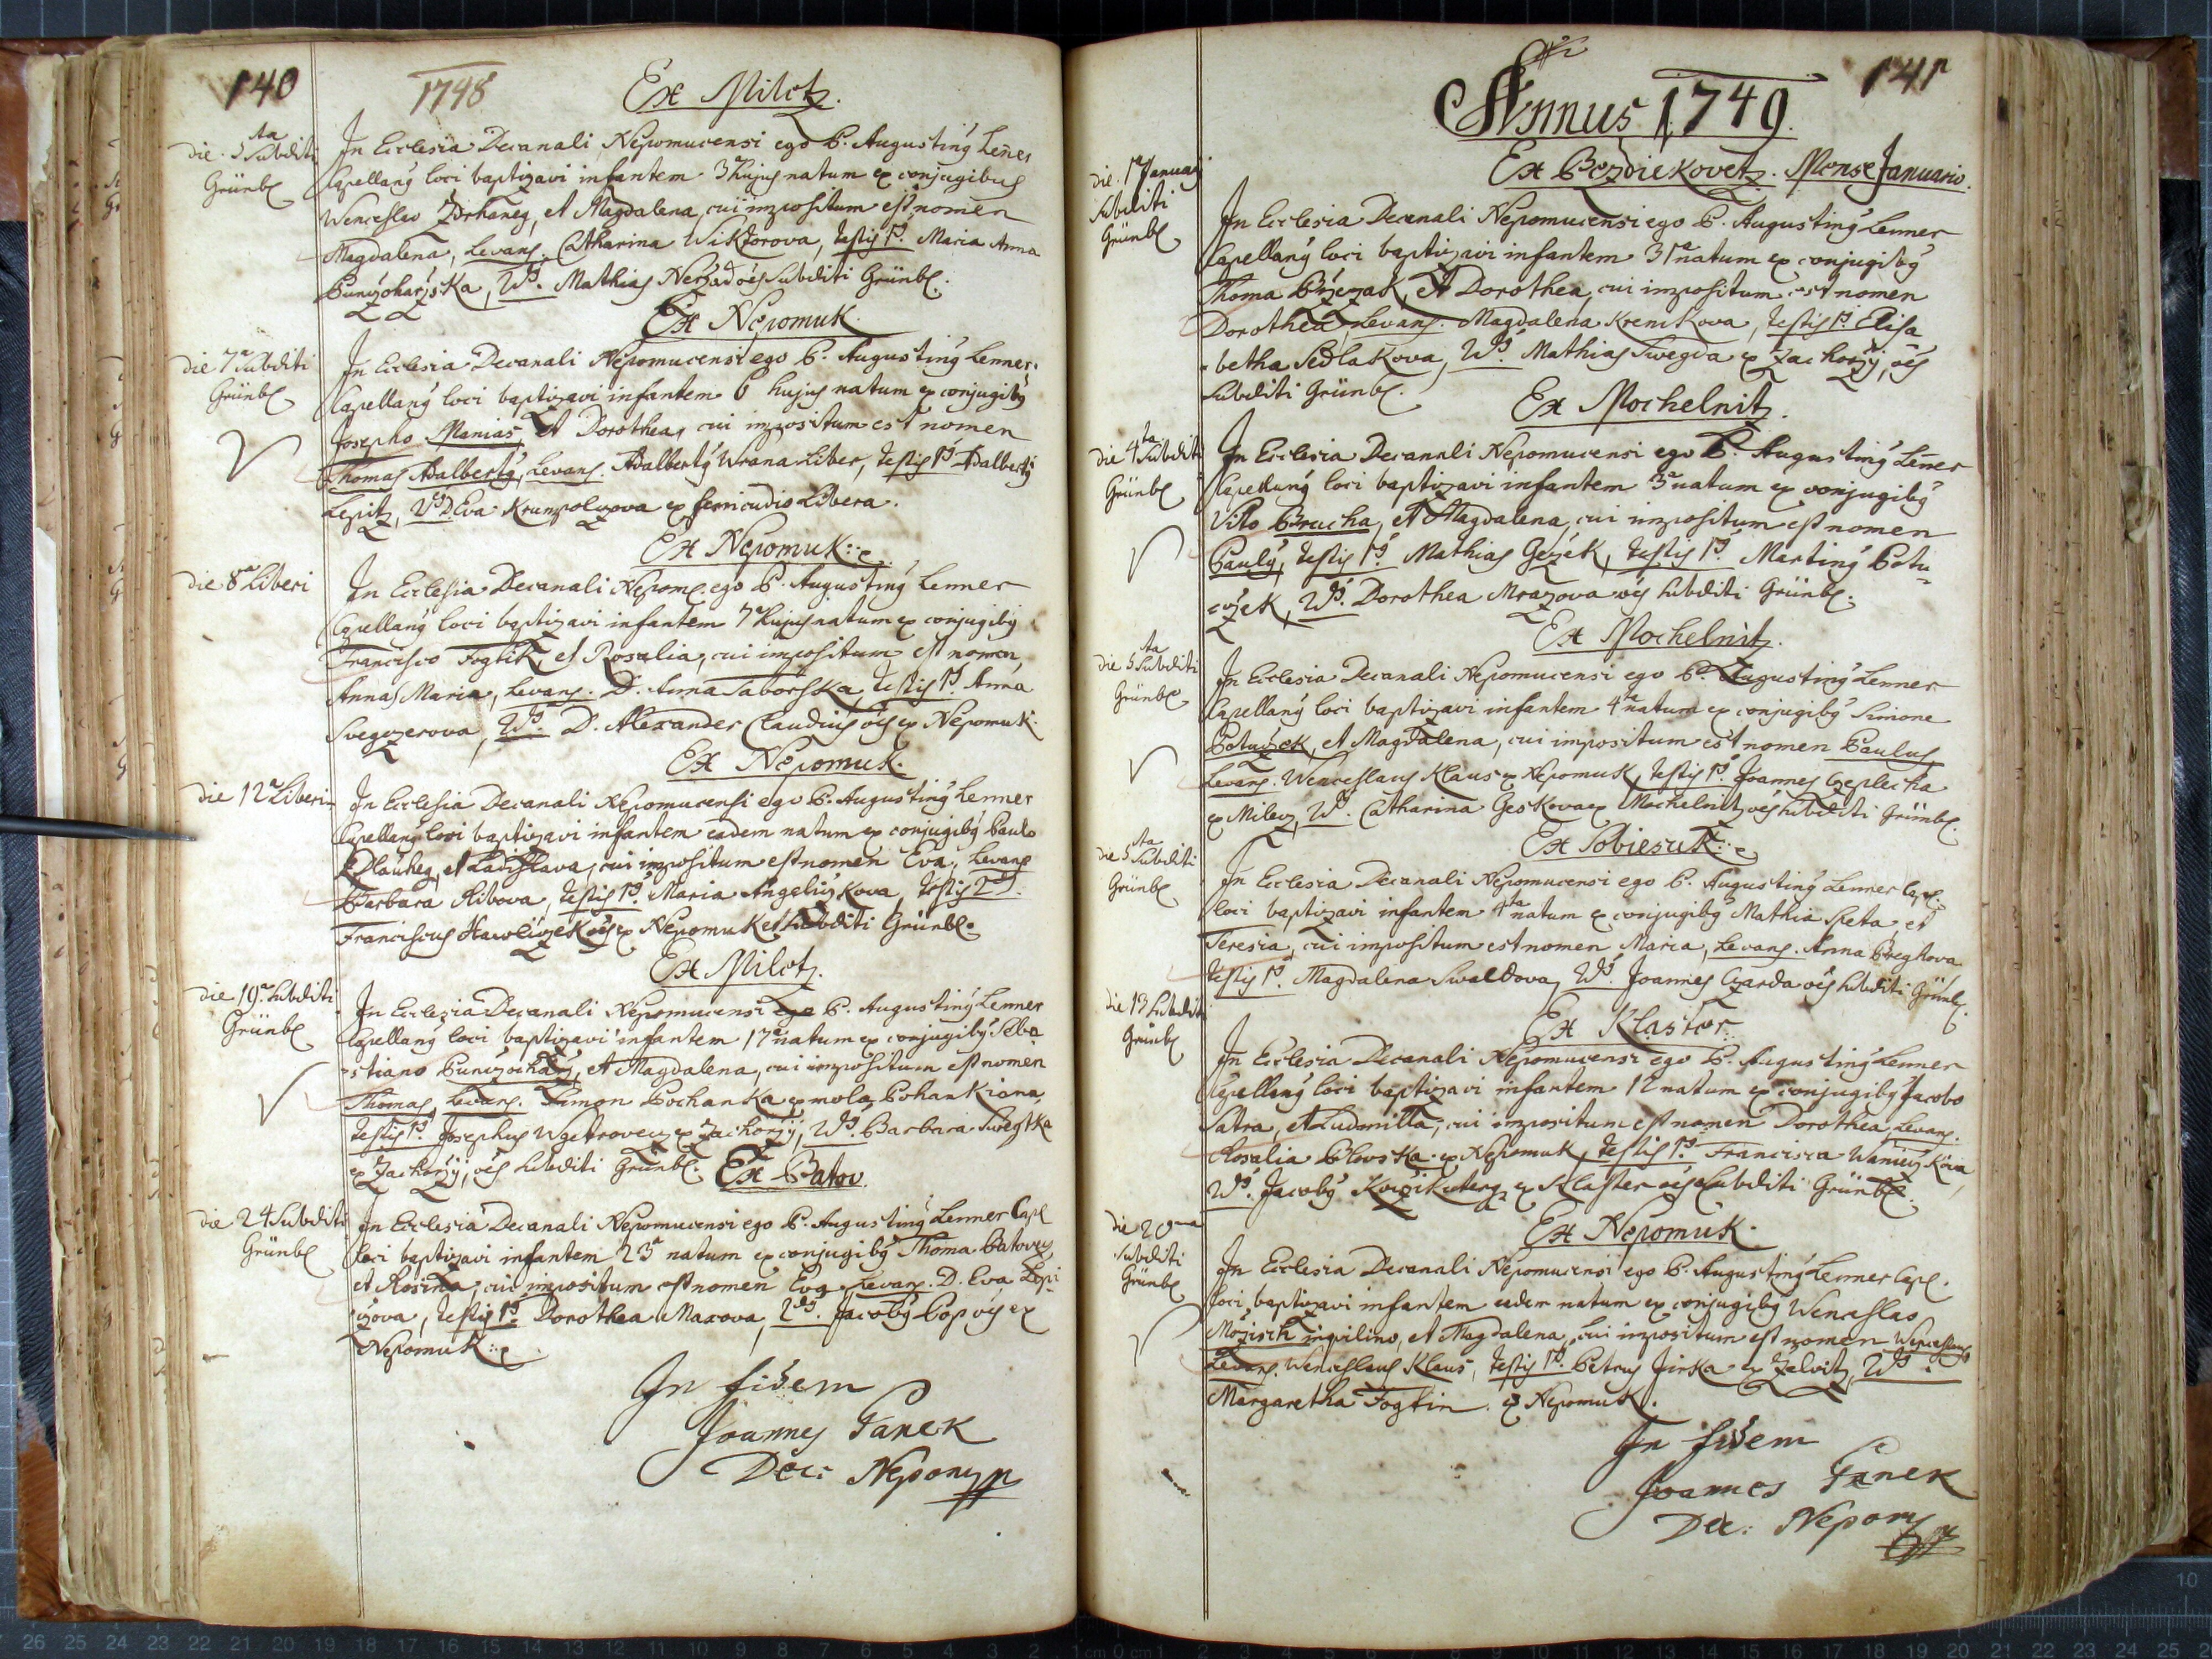 140
1748
Ex Miletz.
die 5ta Subditi
Grünb.
In Ecclesia Decanali Nepomucensi ego P. Augusting Leñer
Capellang loci baptizavi infantem 3 hujus natum ex conjugibus
Wenceslao Zdrhaneg, et Magdalena, cui impositum est nomen
Magdalena, Levans. Catharina Wiktorova, testis 1g. Maria Anna
Mathias subditi Grünb.
Ex Nepomuk.
die 7a Subditi
Grünb.
In Ecclesia Decanali Nepomucensi ego P. Augusting Lenner.
Capellang loci baptizavi infantem 6 hujus natum ex conjugibg
Josepho Manias, et Dorothea, cui impositum est nomen
Thomas Adalbertg, Levans. Adalbertg Wrana Liber, testis 1g Adalbertg
Lepitz, Eva Krumpolzova Libera.
Ex Nepomuk.
die 8a Liberi
In Ecclesia Decanali Nepom. ego P. Augusting Lenner
Capellang loci baptizavi infantem 7a hujus natum ex conjugibg
Francisco Fogtik, et Rosalia, cui impositum est nomen,
Anna Maria, Levans. D. Anna Taborska, testis 1g. Anna
Svegzerova, D. Alexander Claudius ex Nepomuk.
Ex Nepomuk.
die 12a Liberi
In Ecclesia Decanali Nepomucensi ego P. Augusting Lenner
Capellang loci baptizavi infantem eadem natum ex conjugibg Paulo
Dlauheg, et Ladislava, cui impositum est nomen Eva, Levans
Barbara Ribova, testis 1g. Maria Angelizkova, testis 2g.
Franciscus Hawliczek ex Nepomuk et subditi Grünb.
Ex Miletz.
die 19a Subditi
Grünb.
In Ecclesia Decanali Nepomucensi ego P. Augusting Lenner
Capellang loci baptizavi infantem 17a natum ex conjugibg Seba
stiano et Magdalena, cui impositum est nomen
Thomas, Levans. Simon Pochanka ex mola Pohankiana,
testis 1g. Josephus ex Zachorzy, Barbara Swegtka
ex Zachorzy, subditi Grünb. Ex Batov.
die 24 Subditi
Grünb.
In Ecclesia Decanali Nepomucensi ego P. Augusting Lenner Capl
loci baptizavi infantem 23a natum ex conjugibg Thoma Batovey
et Rosina, cui impositum est nomen Eva, Levans. D. Eva Lepi
czova, testis 1g. Dorothea Maxova, Jacobg Cop ex
Nepomuk.
In fidem
Joannes Ganek
Dec: Nepom
141
Annus 1749.
Ex Bezdiekovetz. Mense Januario.
die 1a Januarj
Subditi
Grünb.
In Ecclesia Decanali Nepomucensi ego P. Augusting Lenner
Capellang loci baptizavi infantem 31a natum ex conjugibg
Thoma et Dorothea, cui impositum est nomen
Dorothea, Levans. Magdalena Krenikova, testis 1g. Elisa
betha Sedlakova, Mathias Swegda ex Zachorzy,
subditi Grünb.
Ex Mochelnitz.
die 4ta Subditi
Grünb.
In Ecclesia Decanali Nepomucensi ego P. Augusting Leñer
Capellang loci baptizavi infantem 3a natum ex conjugibg
Vito Brucha, et Magdalena, cui impositum est nomen
Paulg, testis 1g. Mathias Gezek, testis 1g. Marting Potu
czek, Dorothea Mrazova subditi Grünb.
Ex Mochelnitz.
die 5ta Subditi
Grünb.
In Ecclesia Decanali Nepomucensi ego P. Augusting Lenner
Capellang loci baptizavi infantem 4a natum ex conjugibg Simone
Potuczek, et Magdalena, cui impositum est nomen Paulus
Levans. Wenceslaus Klaus ex Nepomuk, testis 1g. Joannes Czeplecha
ex Milecz, Catharina Geskova ex Mochelnitz subditi Grünb.
Ex Sobiesuk.
die 5ta Subditi
Grünb.
In Ecclesia Decanali Nepomucensi ego P. Augusting Lenner Capl.
loci baptizavi infantem 4ta natum ex conjugibg Mathia Reta, et
Teresia, cui impositum est nomen Maria, Levans. Anna Breghova
testis 1g. Magdalena Swaldova, Joannes Czarda subditi Grünb.
Ex Klaster.
die 13 Subditi
Grünb.
In Ecclesia Decanali Nepomucensi ego P. Augusting Lenner
Capellang loci baptizavi infantem 12 natum ex conjugibg Jacobo
Satra, et Ludmilla, cui impositum est nomen Dorothea, Levans.
Rosalia Blovska ex Nepomuk, testis 1g. Francisca
Jacobg ex Klaster subditi Grünb.
Ex Nepomuk.
die 20ma
Subditi
Grünb.
In Ecclesia Decanali Nepomucensi ego P. Augusting Lenner Capl.
loci baptizavi infantem eadem natum ex conjugibg Wenceslao
Mozisch inquilino, et Magdalena, cui impositum est nomen Wenceslaus
Levans. Wenceslaus Klaus, testis 1g. Petrus Jirka ex Zelvitz,
Margaretha Fogtin ex Nepomuk.
In fidem
Joannes Ganek
Dec: Nepom